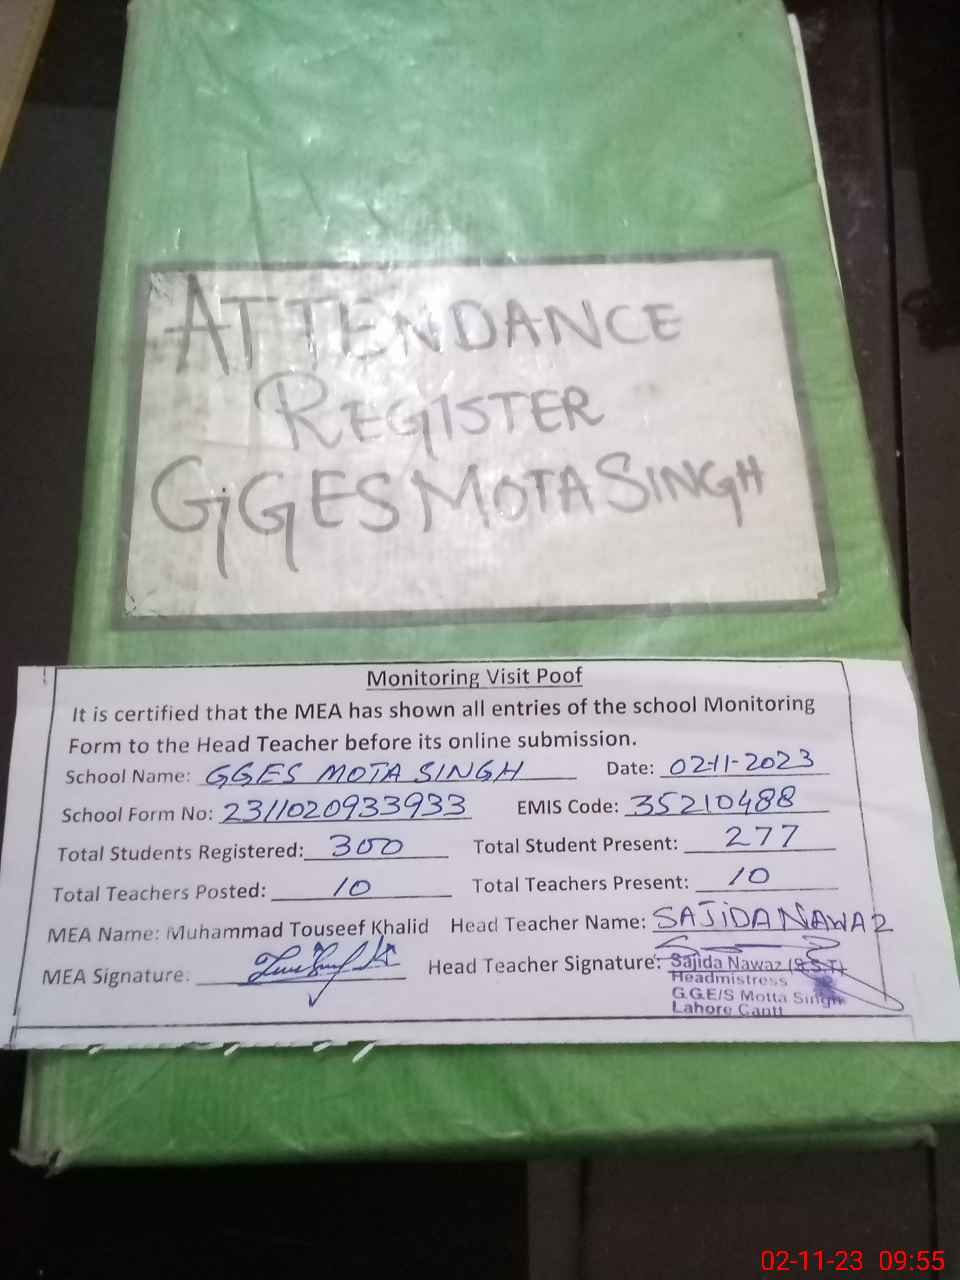 ATTENDANCE
REGISTER
GGES MOTA SINGH
Monitoring Visit Poof
It is certified that the MEA has shown all entries of the school Monitoring
Form to the Head Teacher before its online submission.
School Name: GGES MOTA SINGH Date: 02-11-2023
School Form No: 2311020933933 EMIS Code: 35210488
Total Students Registered: 300 Total Student Present: 277
Total Teachers Posted: 10 Total Teachers Present: 10
MEA Name: Muhammad Touseef Khalid Head Teacher Name: SAJIDA NAWAZ
MEA Signature: Head Teacher Signature: Sajida Nawaz (S.S.T)
Headmistress
G.G.E/S Motta Singh
Lahore Cantt
02-11-23 09:55